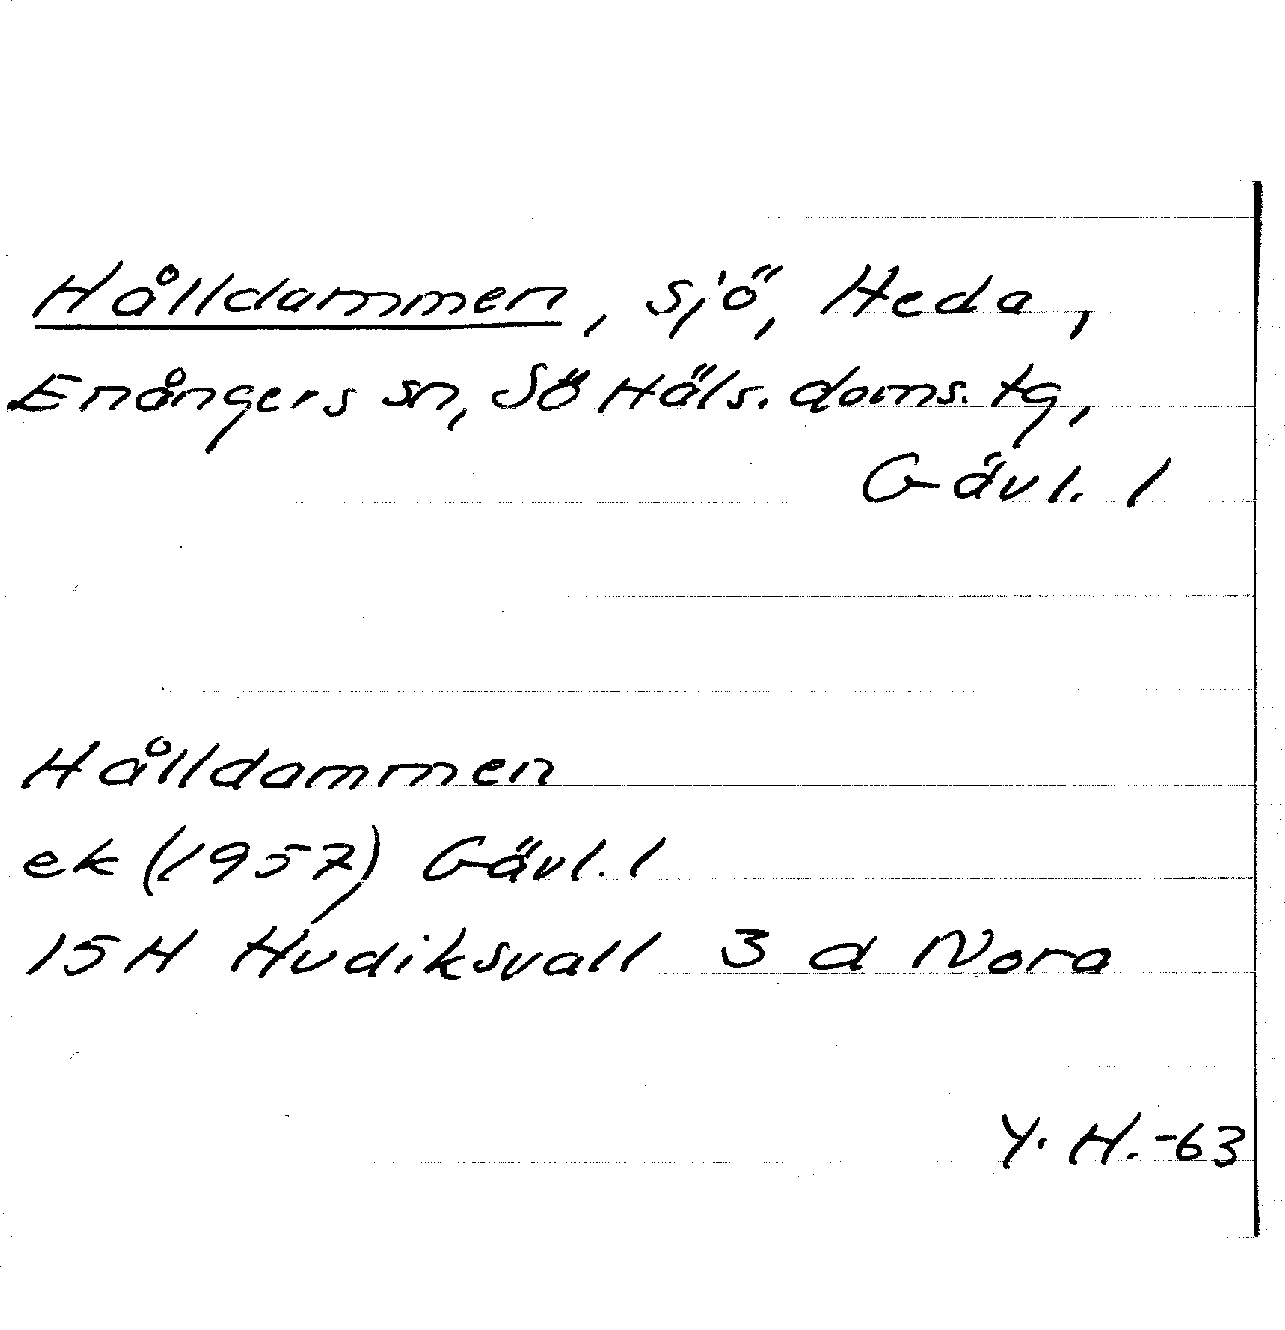 Hålldammen, sjö, Heda,
Enångers sn, Sö Häls. doms. tg,
Gävl. l
Hålldammen
ek (1957) Gävl. l
15H Hudiksvall 3 d Nora
Y. H. -63